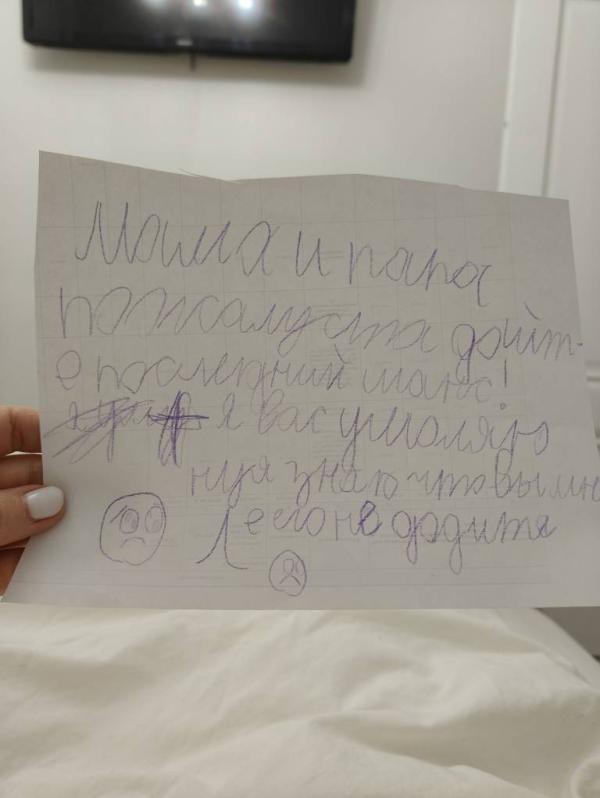 Мама и папа
пожалуста дайт-
е последний шанс!
я вас умоляю
ну я знаю что вы мне
его не дадите